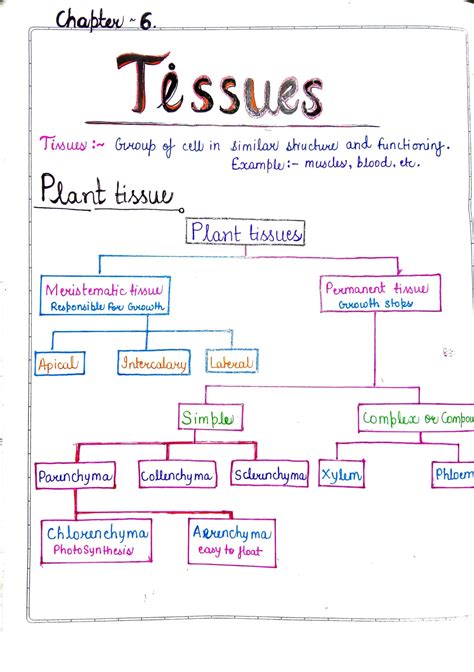 Chapter ~ 6.
Tissues
Tissues :~ Group of cell in similar structure and functioning.
Example:- muscles, blood, etc.
Plant tissue
Plant tissues
Meristematic tissue
Responsible for Growth
Permanent tissue
Growth stops
Apical
Intercalary
Lateral
Simple
Complex or Compou
Parenchyma
Collenchyma
Sclerenchyma
Xylem
Phloem
Chlorenchyma
PhotoSynthesis
Aerenchyma
easy to float